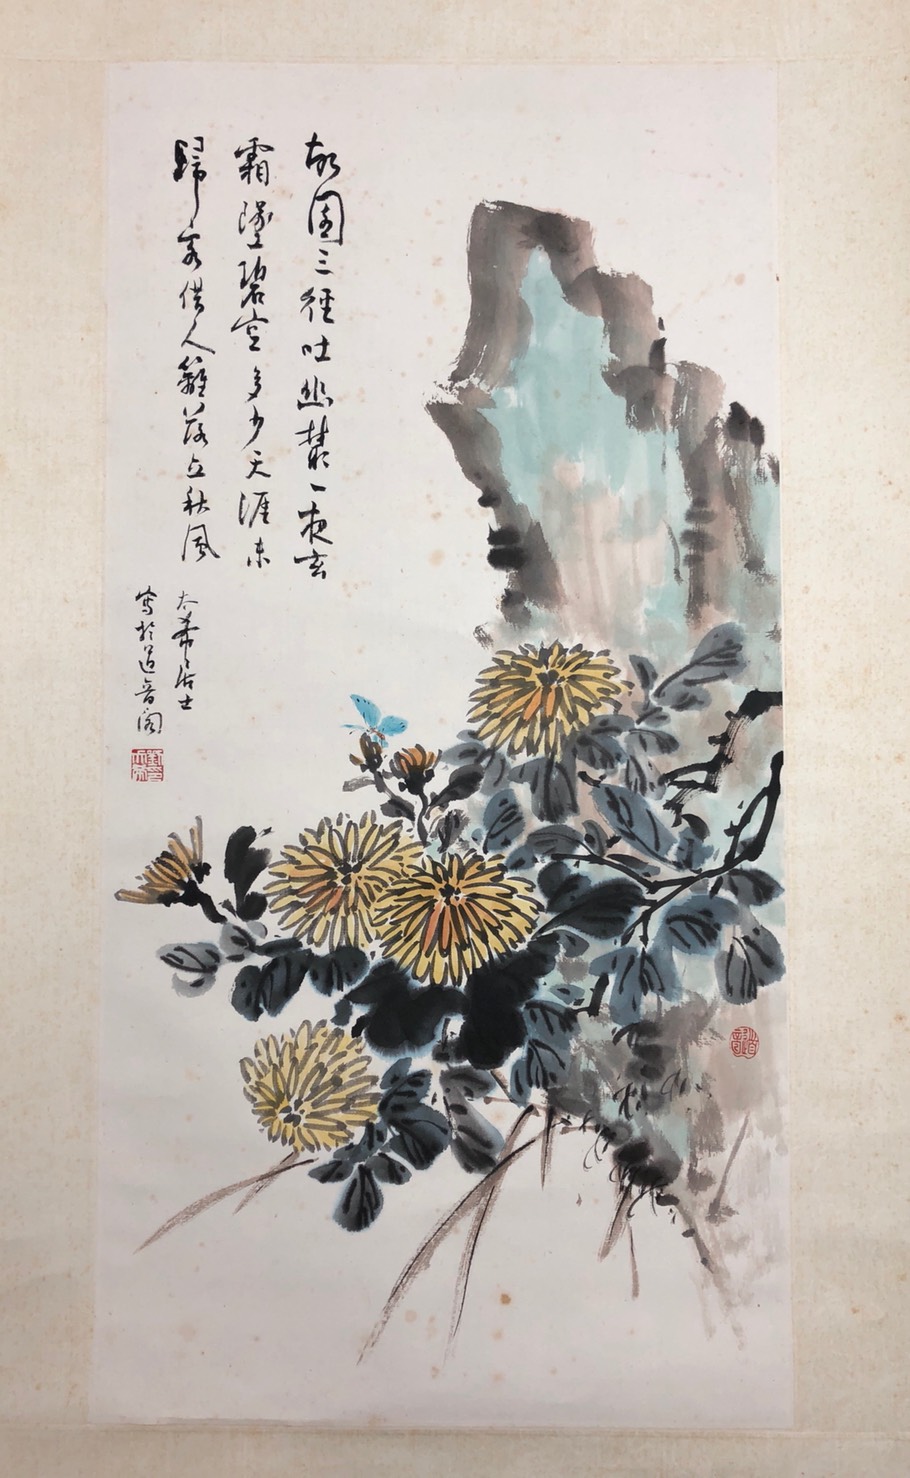 故園三徑吐幽叢一夜玄
霜墜碧空多少天涯未
歸客借人籬落立秋風
太希居士
寫於道音閣